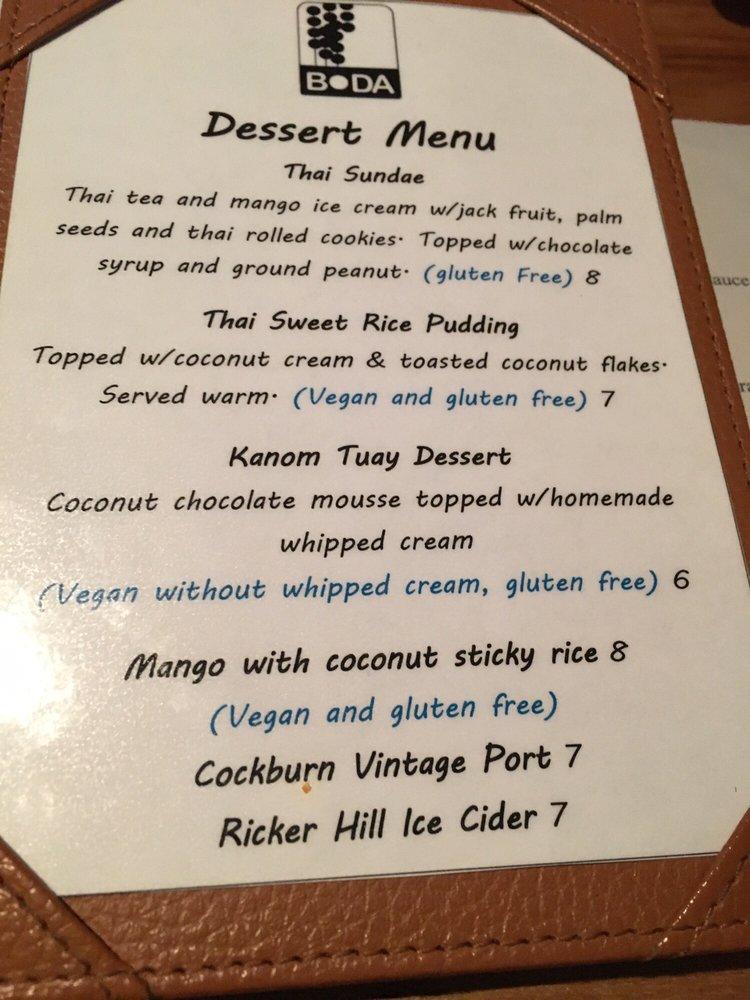 BODA
Dessert Menu
Thai Sundae
Thai tea and mango ice cream w/jack fruit, palm
seeds and thai rolled cookies· Topped w/chocolate
syrup and ground peanut· (gluten Free) 8
Thai Sweet Rice Pudding
Topped w/coconut cream & toasted coconut flakes·
Served warm· (Vegan and gluten free) 7
Kanom Tuay Dessert
Coconut chocolate mousse topped w/homemade
whipped cream
(Vegan without whipped cream, gluten free) 6
Mango with coconut sticky rice 8
(Vegan and gluten free)
Cockburn Vintage Port 7
Ricker Hill Ice Cider 7